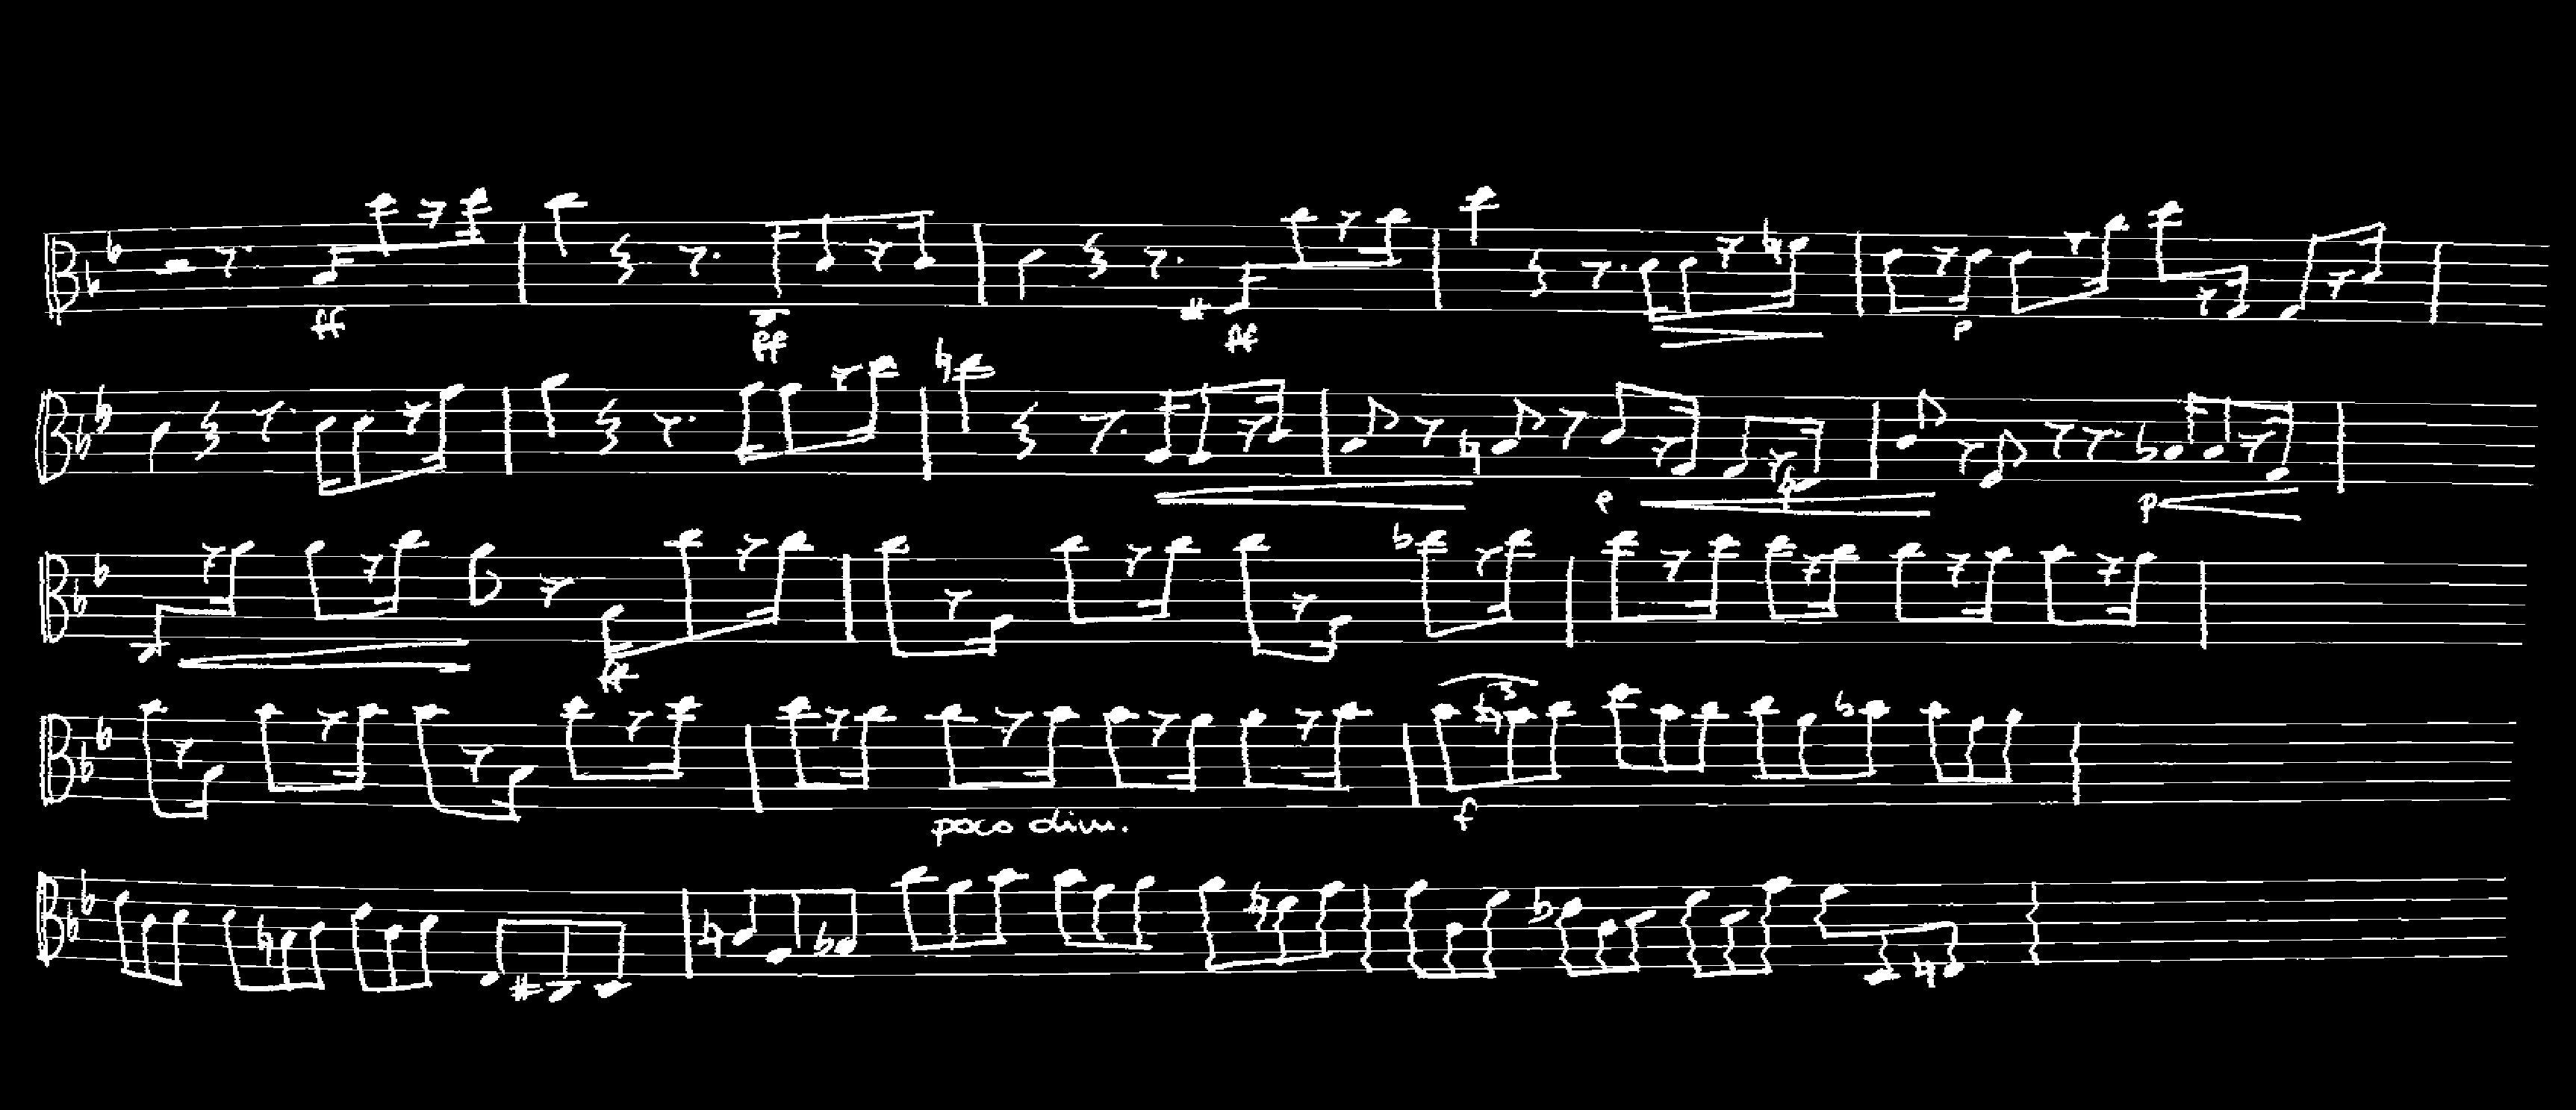 ff ff ff p
p f p
ff
3
poco dim. f